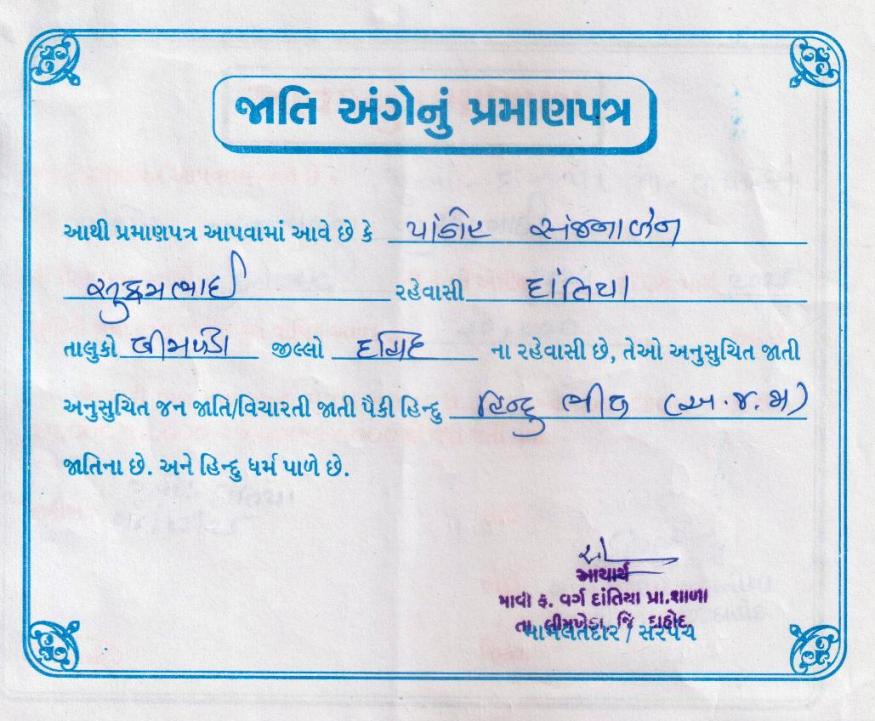 જાતિ અંગેનું પ્રમાણપત્ર
આથી પ્રમાણપત્ર આપવામાં આવે છે કે પાંડોર સંજનાબેન
ભાઈ રહેવાસી દાંતિયા
તાલુકો લીમખેડા જીલ્લો દાહોદ ના રહેવાસી છે, તેઓ અનુસુચિત જાતી
અનુસુચિત જન જાતિ/વિચારતી જાતી પૈકી હિન્દુ હિન્દુ ભીલ (અ.જ.જા)
જાતિના છે. અને હિન્દુ ધર્મ પાળે છે.
આચાર્ય
માવી ફ. વર્ગ દાંતિયા પ્રા.શાળા
તા લીમખેડા જિ દાહોદ
મામલતદાર / સરપંચ